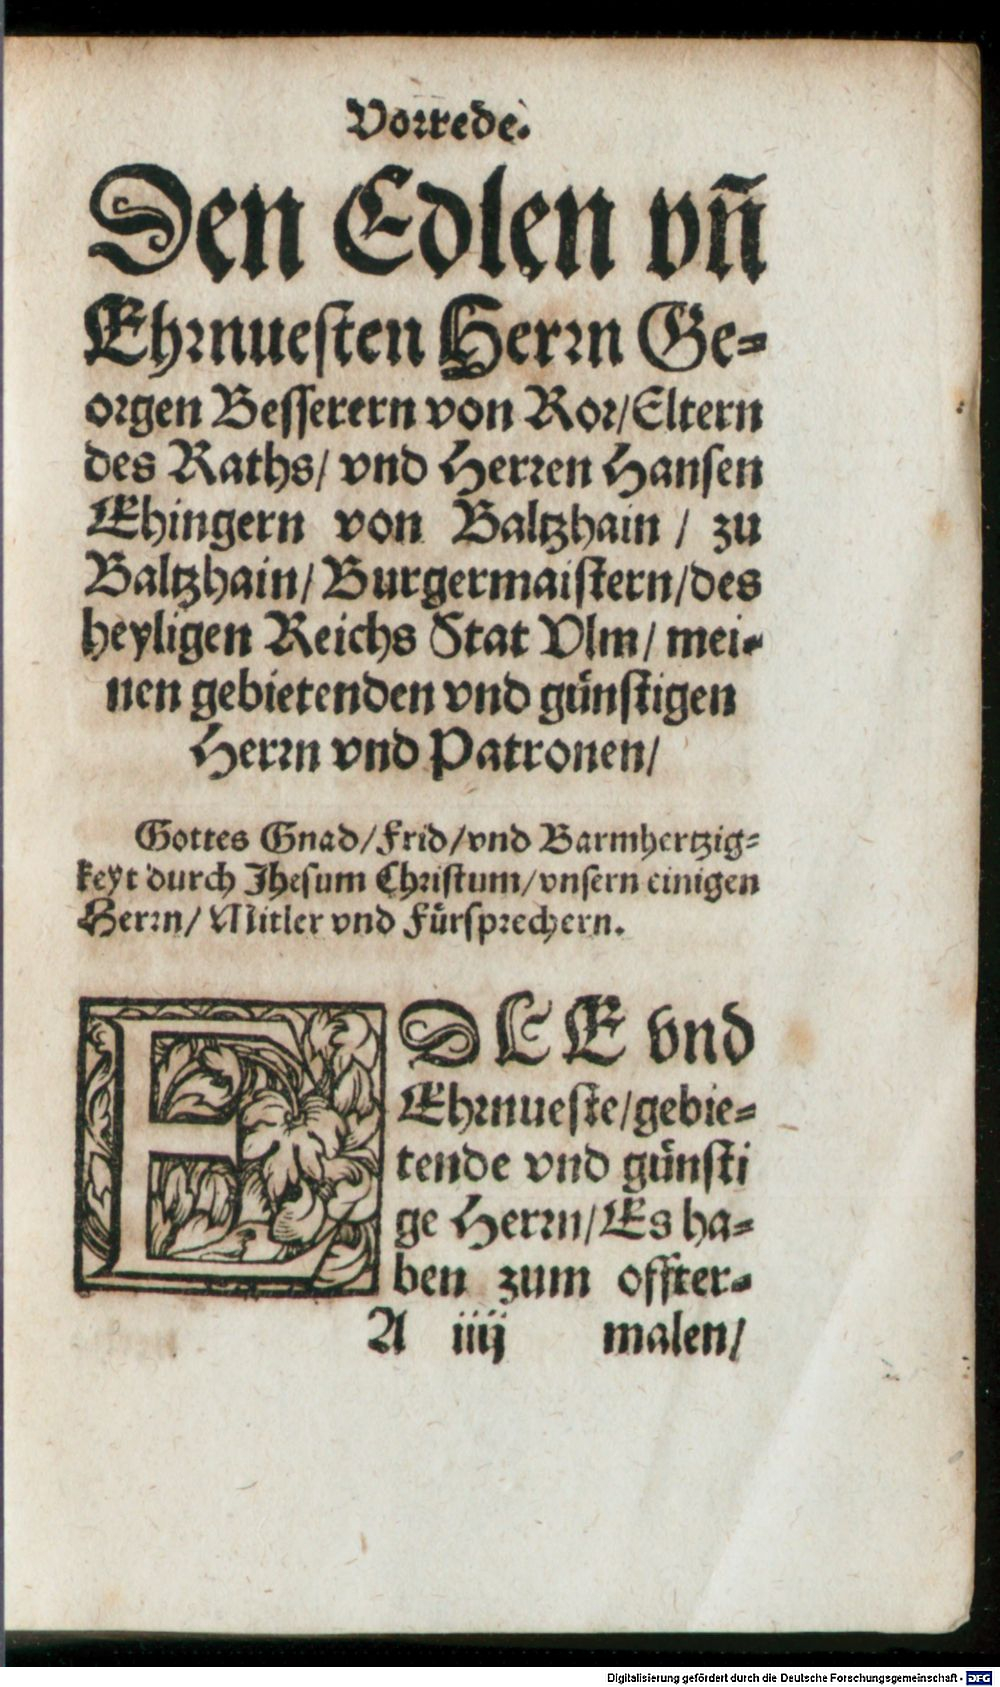 Vorrede.
Den Edlen vñ
Ehrnuesten Herrn Ge=
orgen Besserern von Ror/Eltern
des Raths/ vnd Herren Hansen
Ehingern von Baltzhain / zu
Baltzhain/ Burgermaistern/des
heyligen Reichs Stat Vlm/ mei=
nen gebietenden vnd günstigen
Herrn vnd Patronen/
Gottes Gnad/Frid/vnd Barmhertzig=
keyt durch Jhesum Christum/vnsern einigen
Herrn/ Mitler vnd Fürsprechern.
EDLE vnd
Ehrnueste/gebie=
tende vnd günsti
ge Herrn/Es ha=
ben zum offter=
A iiij malen/
Digitalisierung gefördert durch die Deutsche Forschungsgemeinschaft - DFG